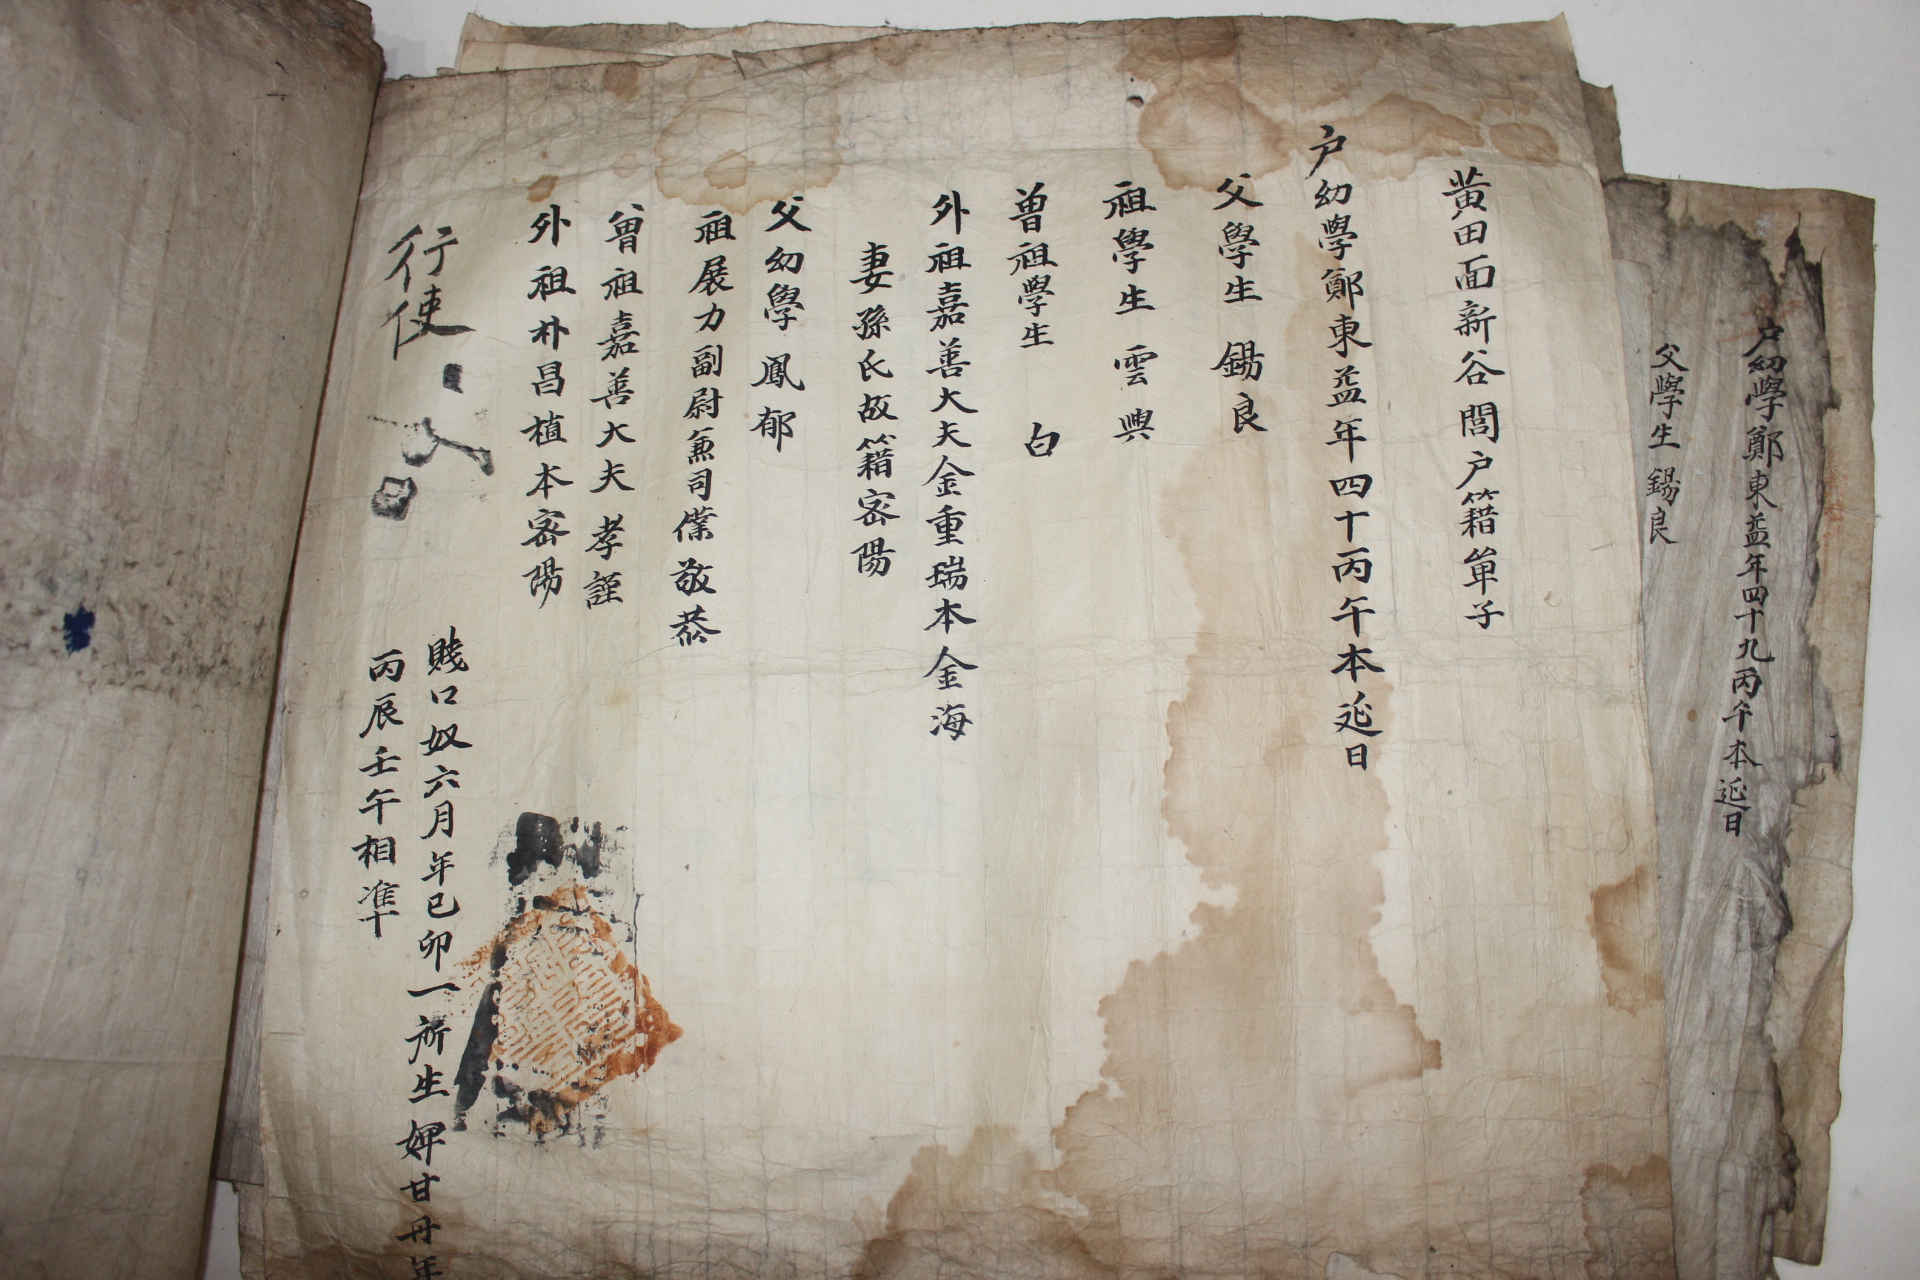 户幼學鄭東益年四十九丙午本延日
父學生 錫良
黃田面新谷閭户籍單子
户幼學鄭東益年四十丙午本延日
父學生 錫良
祖學生 雲興
曾祖學生 白
外祖嘉善大夫金重瑞本金海
妻孫氏故籍密陽
父幼學 鳳郁
祖展力副尉兼司僕敬恭
曾祖嘉善大夫 孝謹
外祖朴昌植本密陽
賤口奴六月年己卯一所生婢甘丹年
丙辰壬午相準
行使